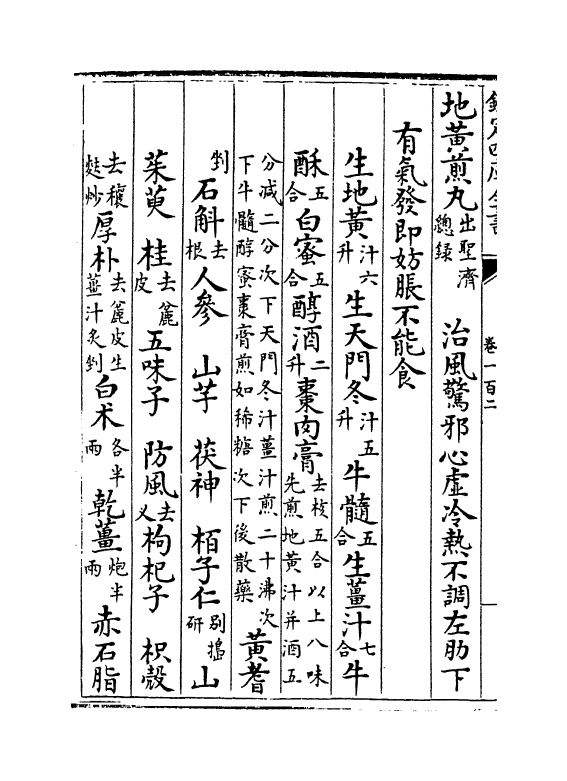 欽定四庫全書
卷一百二
地黃煎丸出聖濟總録 治風驚邪心虛冷熱不調左肋下
有氣發即妨脹不能食
生地黃汁六升 生天門冬汁五升 牛髓五合 生薑汁七合 牛
酥五合 白蜜五合 醇酒二升 棗肉膏去核五合以上八味先煎地黃汁并酒五
分減二分次下天門冬汁薑汁煎二十沸次下牛髓醇蜜棗膏煎如稀糖次下後散藥 黃耆
剉 石斛去根 人參 山芋 茯神 栢子仁别搗研 山
茱萸 桂去麄皮 五味子 防風去义 枸杞子 枳殻
去穰麩炒 厚朴去麄皮生薑汁炙剉 白术各半兩 乾薑炮半兩 赤石脂